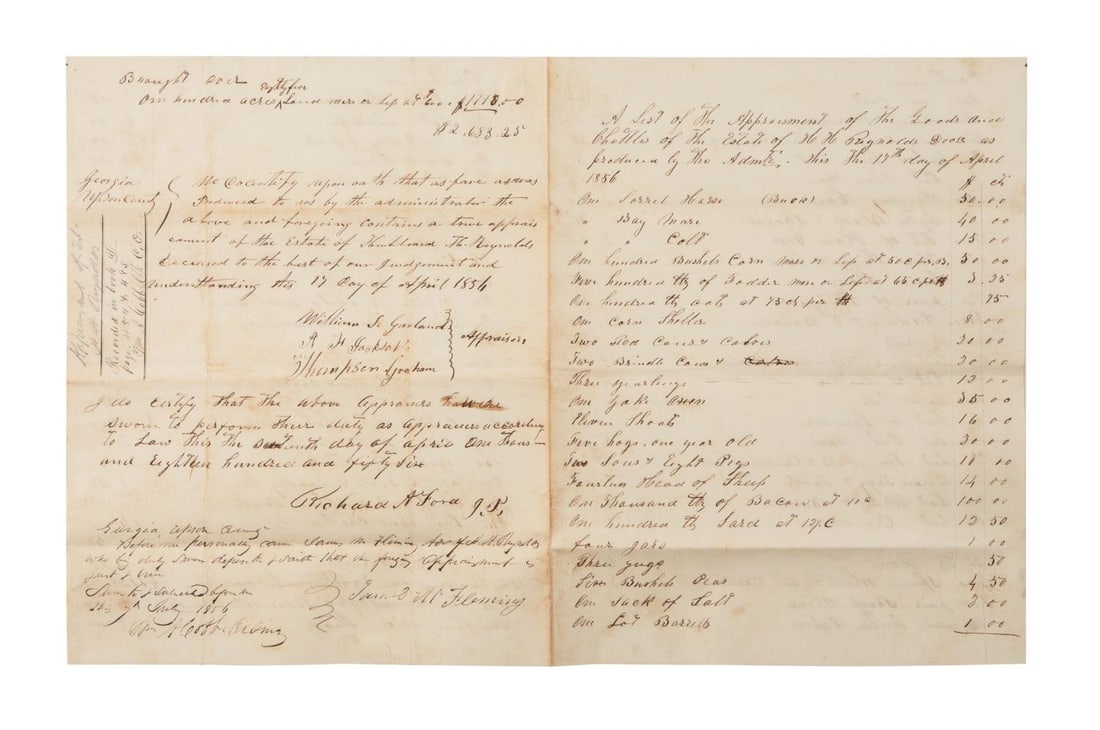 Brought over
eighty five
One hundred acres Land more or less at $1118.00
$2.683.25
Georgia
Upson County
We Cocertify upon oath that as fare as was
Produced to us by the administrator the
above and foregoing contains a true apprais
ement of the Estate of H. Reynolds
deceased to the best of our Judgement and
understanding this 17 day of April 1856
Appraisment of Est.
Reynolds
Recorded in book D
pages 483, 484, 485
C.C.O.
William S. Garland
A F Jackson
Thompson Graham
Appraisers
I do certify that the above appraisers
sworn to perform their duty as appraisers according
to Law This the day of april One Thous-
and Eighteen hundred and fifty Six
Richard A Ford J.P.
Georgia Upson County
Before me Personally came James M Fleming H Reynolds
who being duly sworn deposeth & saith that the forgoing Appraisment is
just & true
Sworn to & subscribed before me
this 7th July 1856
James M Fleming
Wm A Cobb Ordinary
A List of The Appraisment of The Goods and
Chattles of The Estate of H H Reynolds Decs as
produced by the Admtr. This The 17th day of April
1856 $ cts
One Sorrel Horse (Buck) 50 00
" Bay Mare 40 00
" " Colt 15 00
One hundred Bushels Corn more or less at 50 c pr. B. 50 00
Five hundred lb of Fodder more or less at 65 c pr H 3 25
One hundred lb oats at 75 cts per H 75
One Corn Sheller 8 00
Two Red Cows & Calves 20 00
Two Brindle Cows & Calves 20 00
Three yearlings 12 00
One yoke oxen 35 00
Eleven Shoats 16 00
Five hogs, one year old 20 00
Two Sows & Eight Pigs 10 00
Fourteen Head of Sheep 14 00
One Thousand lb of Bacon at 10c 100 00
One hundred lb Lard at 12½C 12 50
four Jars 1 00
Three Jugs 50
Bushels Peas 4 50
One Sack of Salt 2 00
One Lot Barrels 1 00